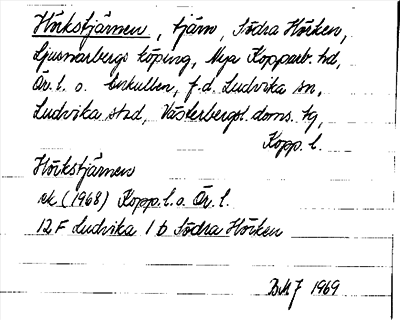 Hörkstjärnen, tjärn, Södra Hörken,
Ljusnarbergs köping, Nya Kopparb. hd,
Ör. l. o. f.d. Ludvika sn,
Ludvika stad, Västerbergsl. doms. tg,
Kopp. l.
Hörkstjärnen
ek (1968) Kopp. l. o. Ör. l.
12 F Ludvika 1 b Södra Hörken
1969